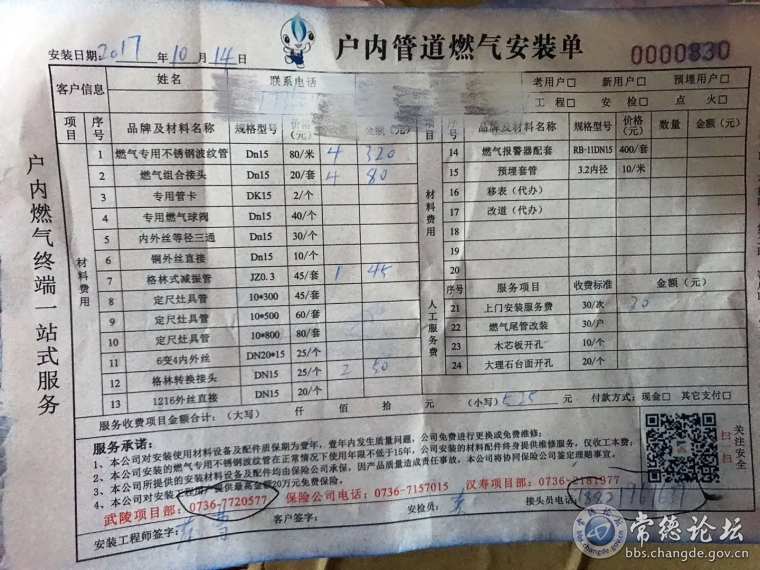 户内管道燃气安装单
0000830
安装日期:2017 年 10 月 14 日
客户信息 姓名 联系电话 老用户□ 新用户□ 预埋用户□
工程□ 安检□ 点火□
项目 序号 品牌及材料名称 规格型号 价格(元) 数量 金额(元)
材料费用
1 燃气专用不锈钢波纹管 Dn15 80/米 4 320
2 燃气组合接头 Dn15 20/套 4 80
3 专用管卡 DK15 2/个
4 专用燃气球阀 Dn15 40/个
5 内外丝等径三通 Dn15 30/个
6 铜外丝直接 Dn15 10/个
7 格林式减振管 JZ0.3 45/套 1 45
8 定尺灶具管 10*300 45/套
9 定尺灶具管 10*500 60/套
10 定尺灶具管 10*800 80/套
11 6变4内外丝 DN20*15 25/个
12 格林转换接头 DN15 25/个 2 50
13 1216外丝直接 DN15 20/个
项目 序号 品牌及材料名称 规格型号 价格(元) 数量 金额(元)
材料费用
14 燃气报警器配套 RB-11DN15 400/套
15 预埋套管 3.2内径 10/米
16 移表(代办)
17 改道(代办)
18
19
20
人工服务费
序号 服务项目 收费标准 金额(元)
21 上门安装服务费 30/次 30
22 燃气尾管改装 30/户
23 木芯板开孔 10/个
24 大理石台面开孔 20/个
服务收费项目金额合计:(大写) 仟 佰 拾 元 (小写)525 元 付款方式:现金□ 其它支付□
服务承诺:
1、本公司对安装使用材料设备及配件质保期为壹年,壹年内发生质量问题,公司免费进行更换或免费维修;
2、本公司安装的燃气专用不锈钢波纹管在正常情况下使用年限不低于15年,公司安装的材料配件终身提供维修服务,仅收工本费;
3、本公司所提供的安装材料设备及配件均由保险公司承保,因产品质量造成责任事故,本公司将协同保险公司鉴定理赔事宜。
4、本公司对安装工程用户提供最高金额20万元免费保险。
武陵项目部:0736-7720577 保险公司电话:0736-7157015 汉寿项目部:0736-2181977
安装工程师签字: 客户签字: 安检员: 接头员电话:
扫一扫
关注安全
户内燃气终端一站式服务
常德论坛
bbs.changde.gov.cn